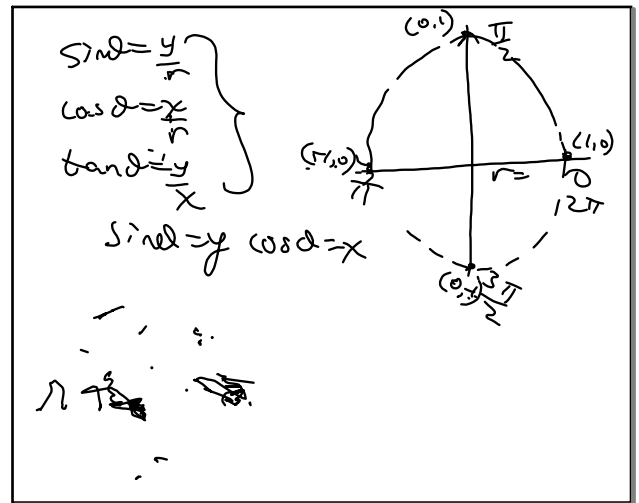 sinθ = y/r
cosθ = x/r
tanθ = y/x
sinθ = y cosθ = x
(0,1) π/2
(-1,0) π
(1,0) 0
r =
2π
3π/2